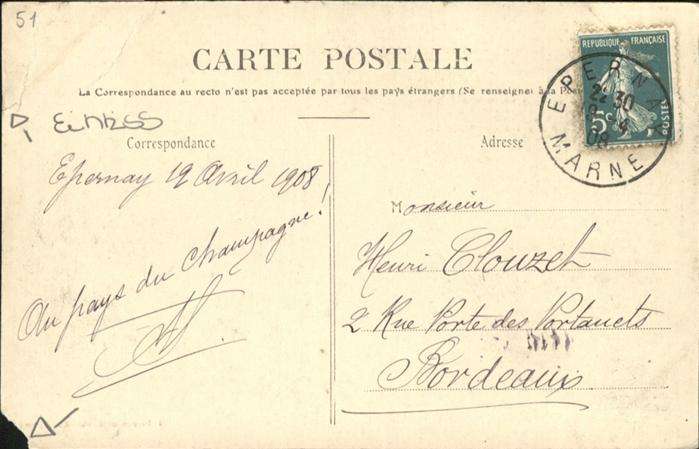 51
CARTE POSTALE
La Correspondance au recto n'est pas acceptée par tous les pays étrangers (Se renseigner à la Poste
Correspondance
Epernay 19 Avril 1908
Au pays du Champagne!
Adresse
Monsieur
Henri Clouzet
2 Rue Porte des Portanets
Bordeaux
REPUBLIQUE FRANÇAISE
5c
POSTES
EPERNAY
22 30
08
MARNE